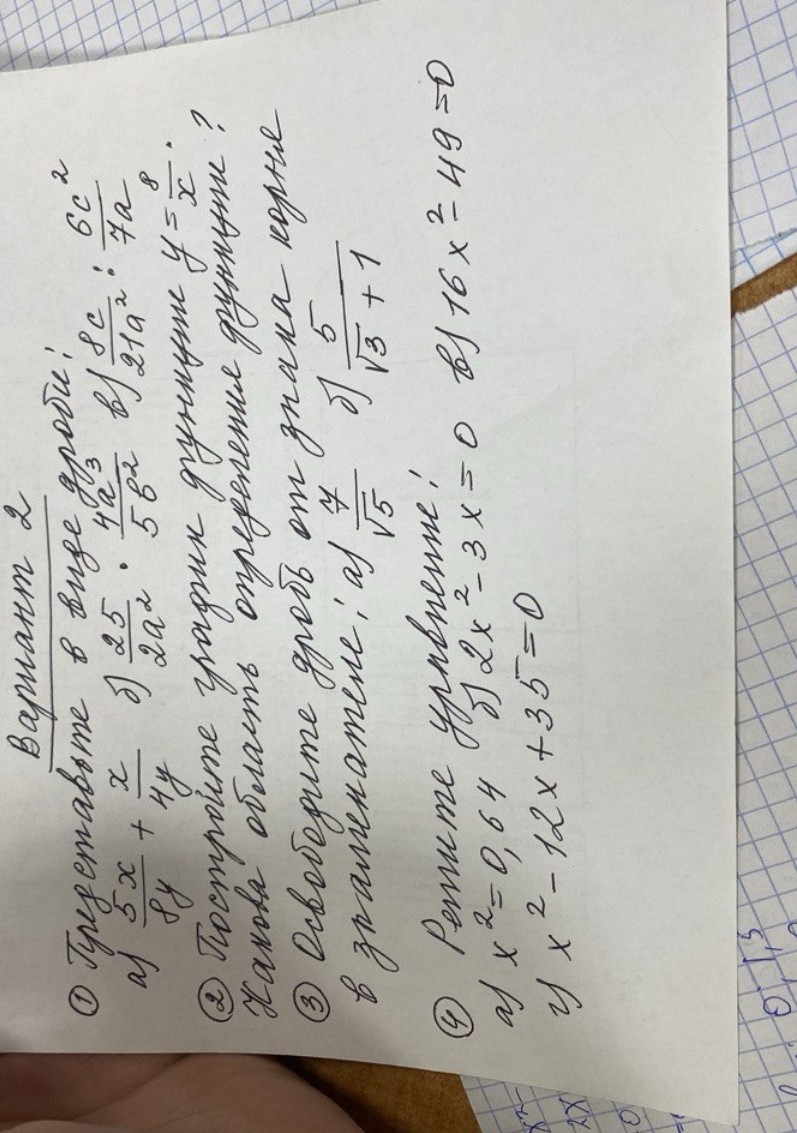 Вариант 2
① Представьте в виде дроби:
а) 5x/8y + x/4y б) 25/2a² · 4a³/5b² в) 8c/21a² : 6c²/7a
② Постройте график функции y = 8/x.
Какова область определения функции?
③ Освободите дробь от знака корня
в знаменателе: а) 7/√5 б) 5/(√3 + 1)
④ Решите уравнение:
а) x² = 0,64 б) 2x² - 3x = 0 в) 16x² - 49 = 0
г) x² - 12x + 35 = 0